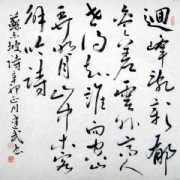 迴峰亂嶂郁
参差雲外高人
世得知誰向空山
弄明月山中木客
解吟詩
蘇東坡詩辛卯正月